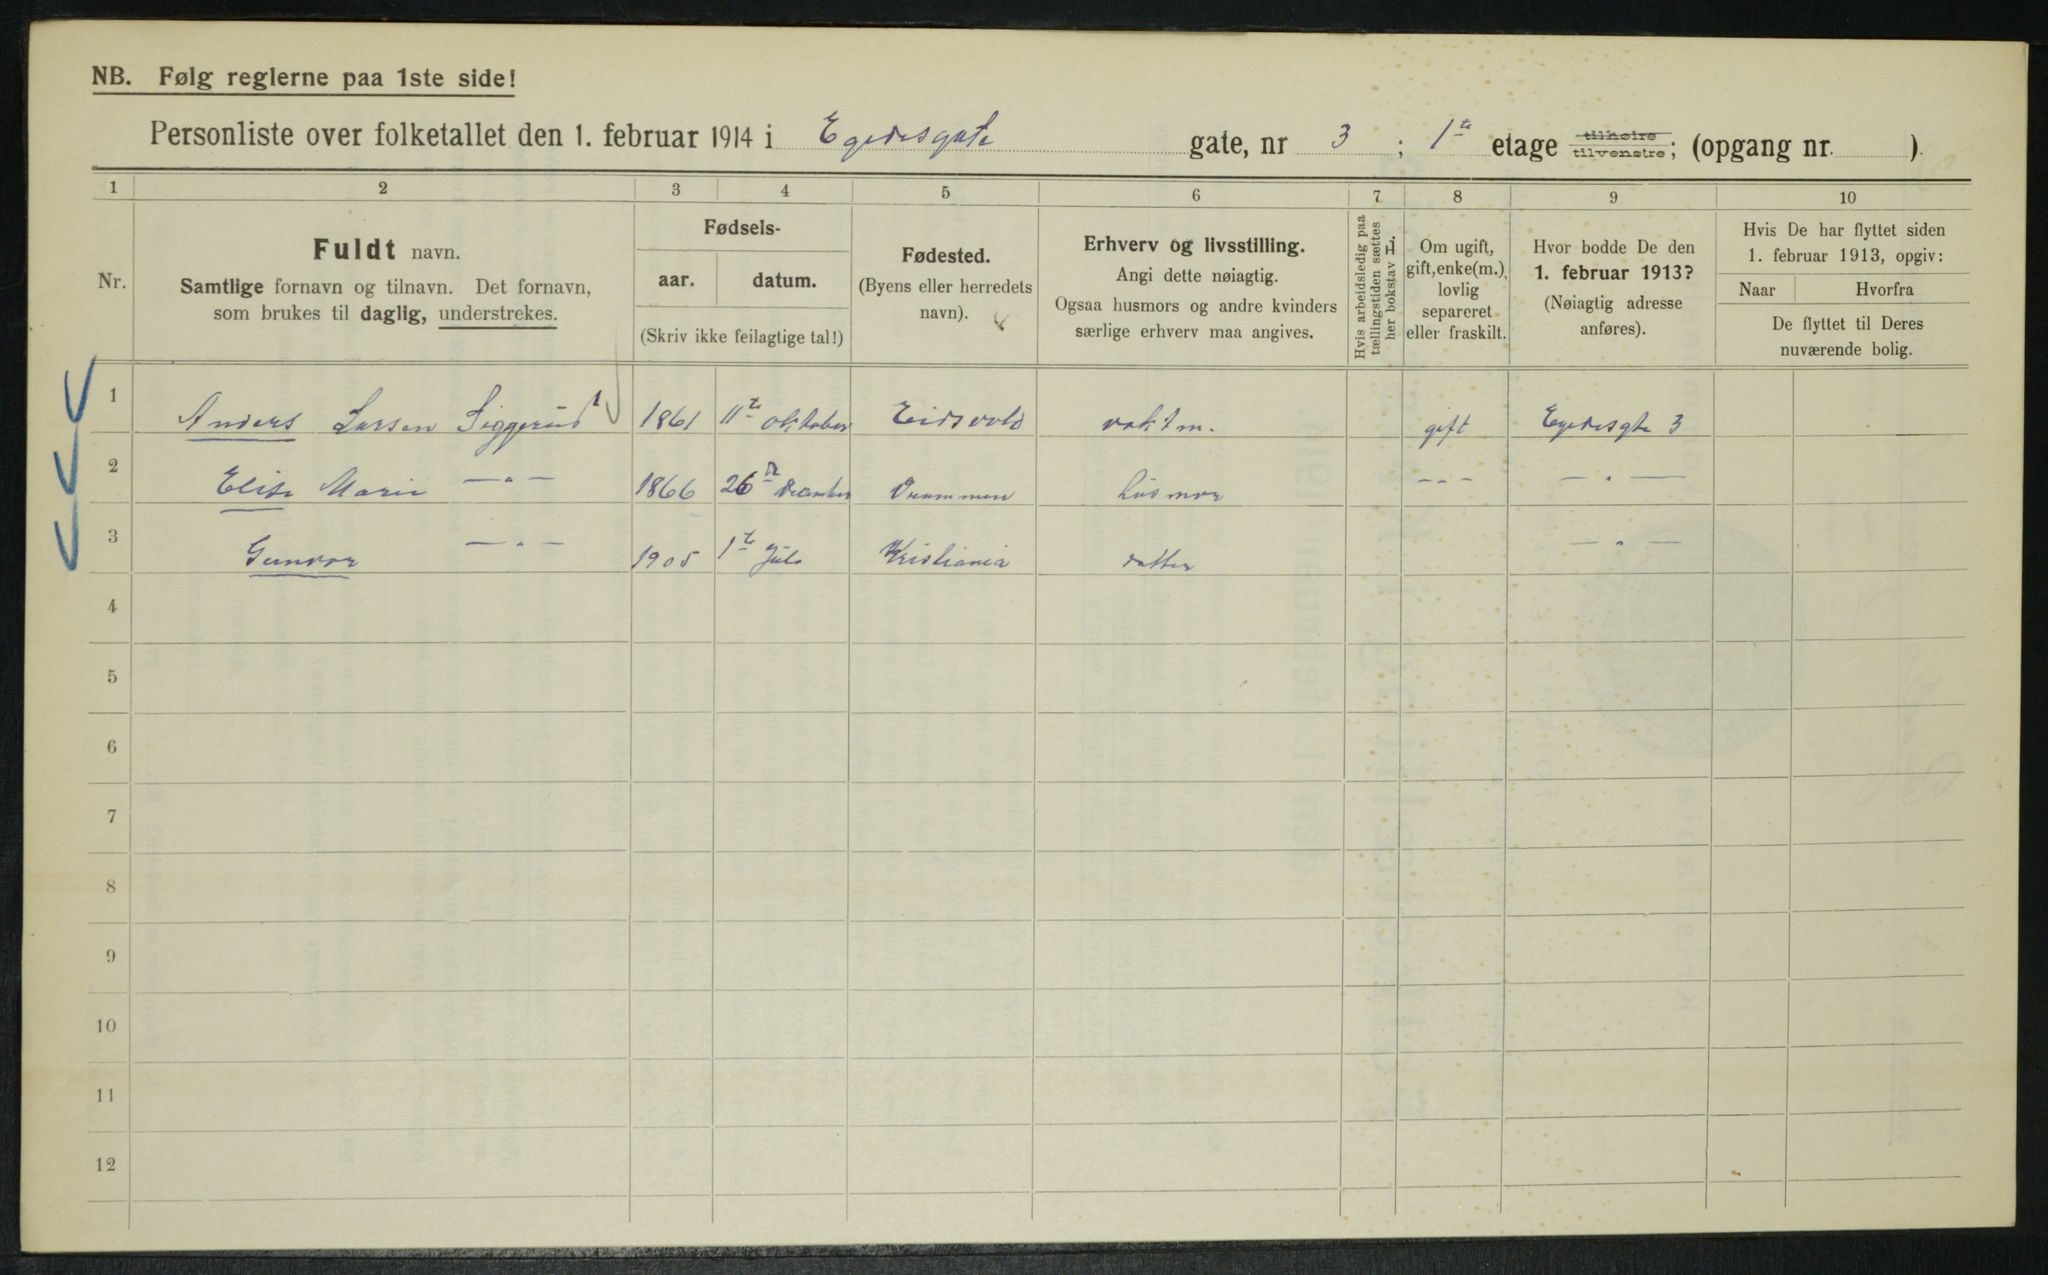 NB. Følg reglerne paa 1ste side!
Personliste over folketallet den 1. februar 1914 i Egedesgate gate, nr 3 ; 1te etage tilhøire tilvenstre; (opgang nr. ).
1 2 3 4 5 6 7 8 9 10
Nr.
Fuldt navn.
Samtlige fornavn og tilnavn. Det fornavn,
som brukes til daglig, understrekes.
Fødsels-
aar. datum.
(Skriv ikke feilagtige tal!)
Fødested.
(Byens eller herredets
navn).
Erhverv og livsstilling.
Angi dette nøiagtig.
Ogsaa husmors og andre kvinders
særlige erhverv maa angives.
Hvis arbeidsledig paa
tællingstiden sættes
her bokstav L.
Om ugift,
gift, enke(m.),
lovlig
separeret
eller fraskilt.
Hvor bodde De den
1. februar 1913?
(Nøiagtig adresse
anføres).
Hvis De har flyttet siden
1. februar 1913, opgiv:
Naar Hvorfra
De flyttet til Deres
nuværende bolig.
1 Anders Larsen Siggerud 1861 11te oktober Eidsvold vaktm. gift Egedesgte 3
2 Elise Marie —„— 1866 26de December Drammen husmor --- —„—
3 Gunvor —„— 1905 1te Juli Kristiania datter —„—
4
5
6
7
8
9
10
11
12